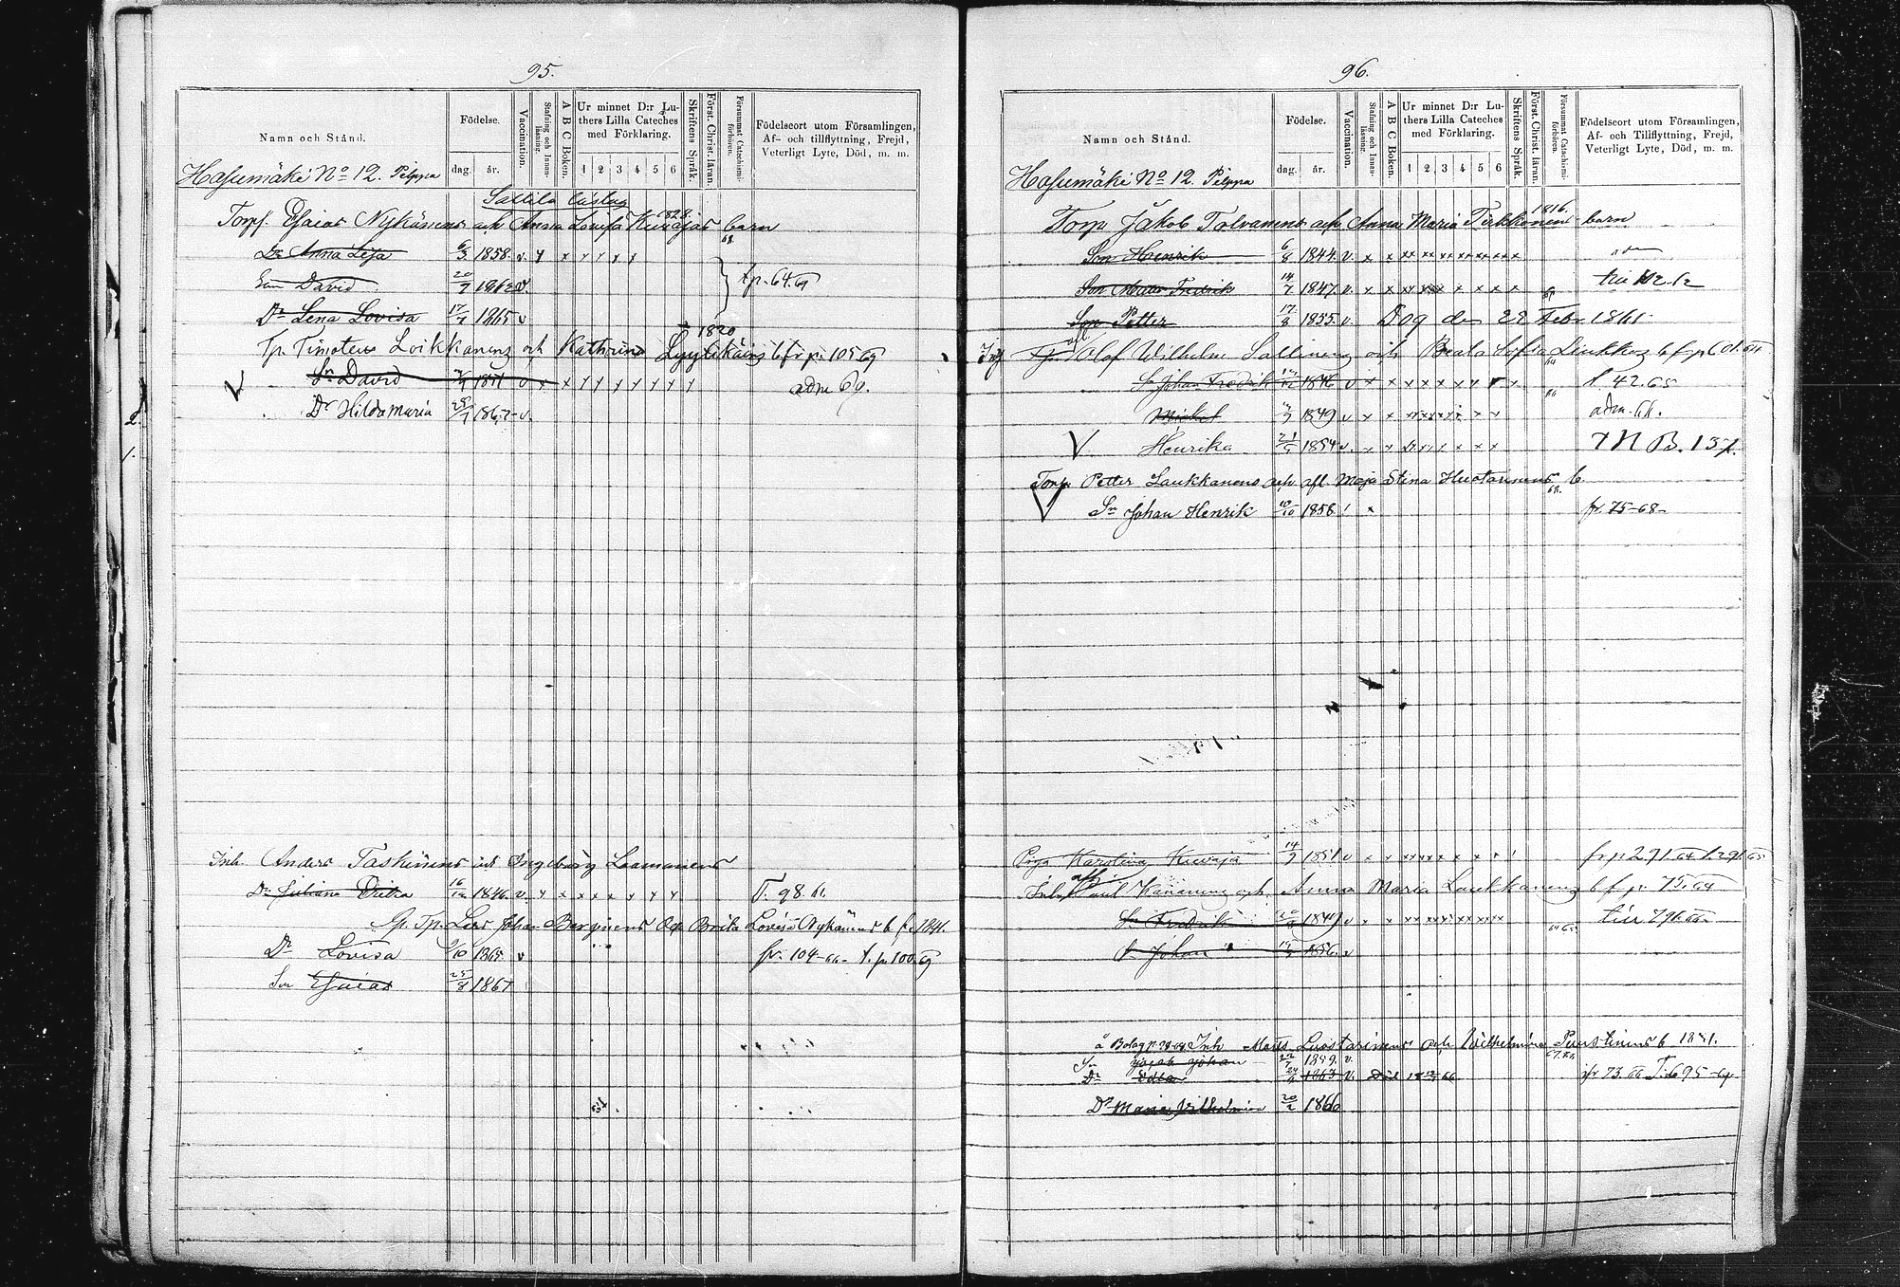 95.
Namn och Stånd.
Födelse.
dag. år.
Vaccination.
Stafning och Innanläsning.
A B C Boken.
Ur minnet D:r Luthers Lilla Cateches med Förklaring.
1 2 3 4 5 6
Skriftens Språk.
Först. Christ. läran.
Försummat Catechismiförhören.
Födelseort utom Församlingen, Af- och tillflyttning, Frejd, Veterligt Lyte, Död, m. m.
Hasumäki No 12. Pelppa
Torp. Esaias Nykänens och Anna Lovisa Kuivajas 1828. barn
Dr Anna Lisa 6/3 1858. v. x x x x x x
Son David 20/7 1862 v. fp. 64. 69
Dr Lena Lovisa 17/7 1865 v
Tp. Timoteus Loikkanens och Kathrina Lyytikäins 1820 b fr p. 105 69
Sn David 1851 v x x x x x x x x x adm 69.
Dr Hilda Maria 1867 v.
Inh. Anders Taskinens och Ingeborg Laamanens
Dr Juliana Brita 16/12 1846. v. x x x x x x x x T. 98 61.
Tp. Lars Johan Bergmens och Brita Lovisa Nykänens b f. 1841.
Dr Lovisa 9/10 1865 v fr. 104-66- t. p. 100. 69
Sn Esaias 25/8 1867
96.
Namn och Stånd.
Födelse.
dag. år.
Vaccination.
Stafning och Innanläsning.
A B C Boken.
Ur minnet D:r Luthers Lilla Cateches med Förklaring.
1 2 3 4 5 6
Skriftens Språk.
Först. Christ. läran.
Försummat Catechismiförhören.
Födelseort utom Församlingen, Af- och Tillflyttning, Frejd, Veterligt Lyte, Död, m. m.
Hasumäki No 12. Pelppa
Torp. Jakob Tolvanens och Anna Maria Tirkkonens 1816. barn
Son Henrik 6/8 1844. v. x x xx x x x x x x x
Son Fredrik 14/7 1847. v x x x x x x x x x x
Son Petter 17/8 1855. v. Dog den 22 Febr 1861
Inh Olof Wilhelm Sallinens och Beata Sofia Liukkos b fr p 61. 64
Sn Johan Fredrik 1846 v x x x x x x x x x t 42. 65
Mickel 1849 v x x x x x x x x x adm. 66.
V Henrika 21/5 1854 v. x x x x x x x x N B. 137.
Torp. Petter Laukkanens och afl. Maja Stina Huotarinens b.
V Sn Johan Henrik 1858 x fr. 75-68-
Piga Karolina Kuivaja 14/9 1851 v x x x x x x x x x fr p 291 64 t. 291 65
Inh. afl. Paul Hanninens och Anna Maria Laukkanens b f. p. 75. 64
Sn Fredrik 1849 v x x x x x x x x till 296. 66.
Sn Johan 1856. v
å Bolag p. 78 64 Inh Matts Luostarinens och Wilhelmina Puustinens b 1831.
Sn Jakob Johan 1859. v.
Dr Edla 1863 v. Död 66 fr 73. 66 T. 695-67.
Dr Maria Vilhelmina 20/2 1866